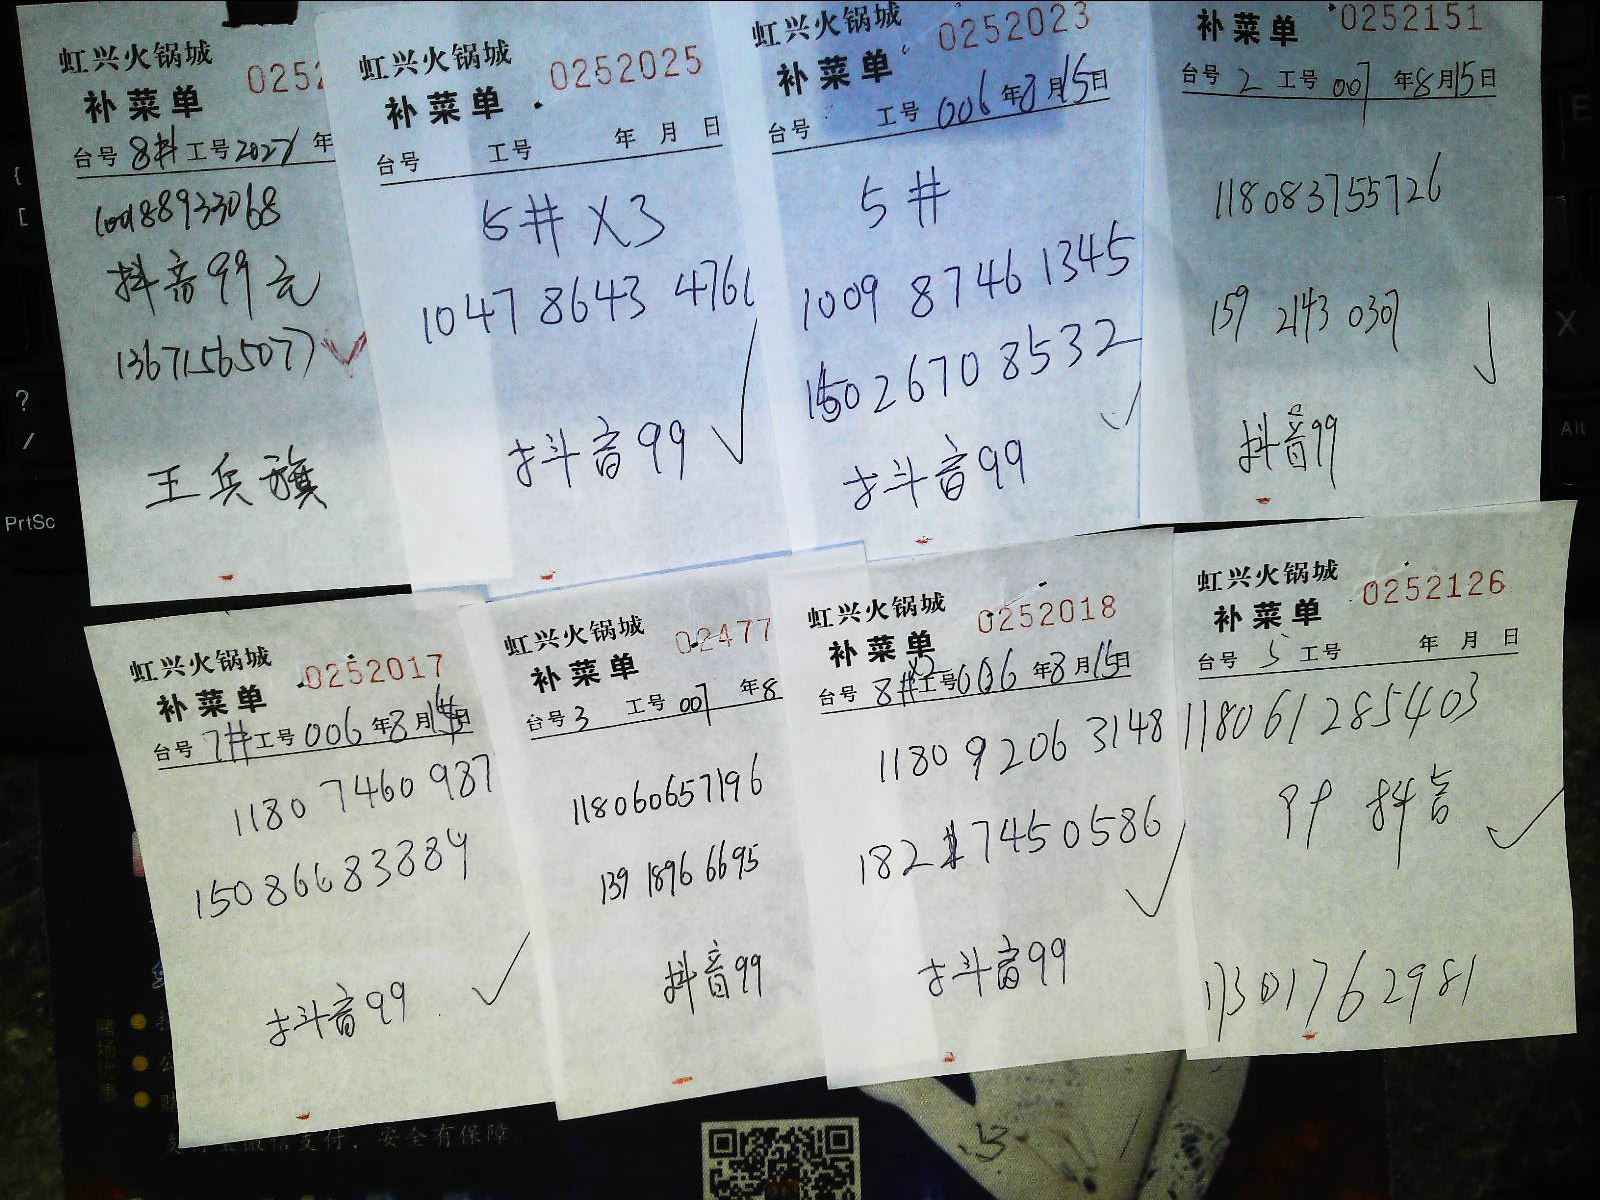 虹兴火锅城
0252
补菜单
台号 8# 工号 年
抖音99元
13671565077
王兵旗
虹兴火锅城
0252025
补菜单
台号 工号 年 月 日
5# X3
1047 8643 4761
抖音99
虹兴火锅城
0252023
补菜单
台号 工号 006 年8月15日
5#
1009 8746 1345
15026708532
抖音99
0252151
补菜单
台号 2 工号 007 年8月15日
118083755726
159 2143 0307
抖音99
虹兴火锅城
0252017
补菜单
台号 7# 工号 006 年8月15日
1180 7460 987
15086683889
抖音99
虹兴火锅城
02477
补菜单
台号 3 工号 007 年8
118060657196
139 1896 6695
抖音99
虹兴火锅城
0252018
补菜单
台号 8#X2 工号 006 年8月15日
1180 9206 3148
182 1 7450586
抖音99
虹兴火锅城
0252126
补菜单
台号 5 工号 年 月 日
118061285403
99 抖音
17301762981
PrtSc
Alt
支付，安全有保障